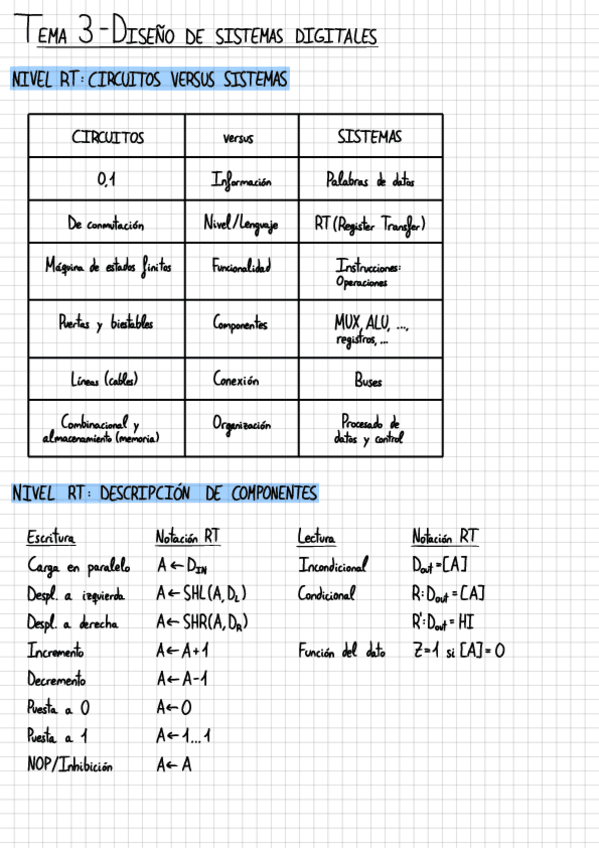 TEMA 3-DISEÑO DE SISTEMAS DIGITALES
NIVEL RT: CIRCUITOS VERSUS SISTEMAS
CIRCUITOS versus SISTEMAS
0,1 Información Palabras de datos
De conmutación Nivel/Lenguaje RT (Register Transfer)
Máquina de estados finitos Funcionalidad Instrucciones:
Operaciones
Puertas y biestables Componentes MUX, ALU, ...,
registros, ...
Líneas (cables) Conexión Buses
Combinacional y Organización Procesado de
almacenamiento (memoria) datos y control
NIVEL RT: DESCRIPCIÓN DE COMPONENTES
Escritura Notación RT Lectura Notación RT
Carga en paralelo A ← D_IN Incondicional D_out = [A]
Despl. a izquierda A ← SHL(A, D_L) Condicional R: D_out = [A]
Despl. a derecha A ← SHR(A, D_R) R': D_out = HI
Incremento A ← A+1 Función del dato Z=1 si [A]=0
Decremento A ← A-1
Puesta a 0 A ← 0
Puesta a 1 A ← 1...1
NOP/Inhibición A ← A